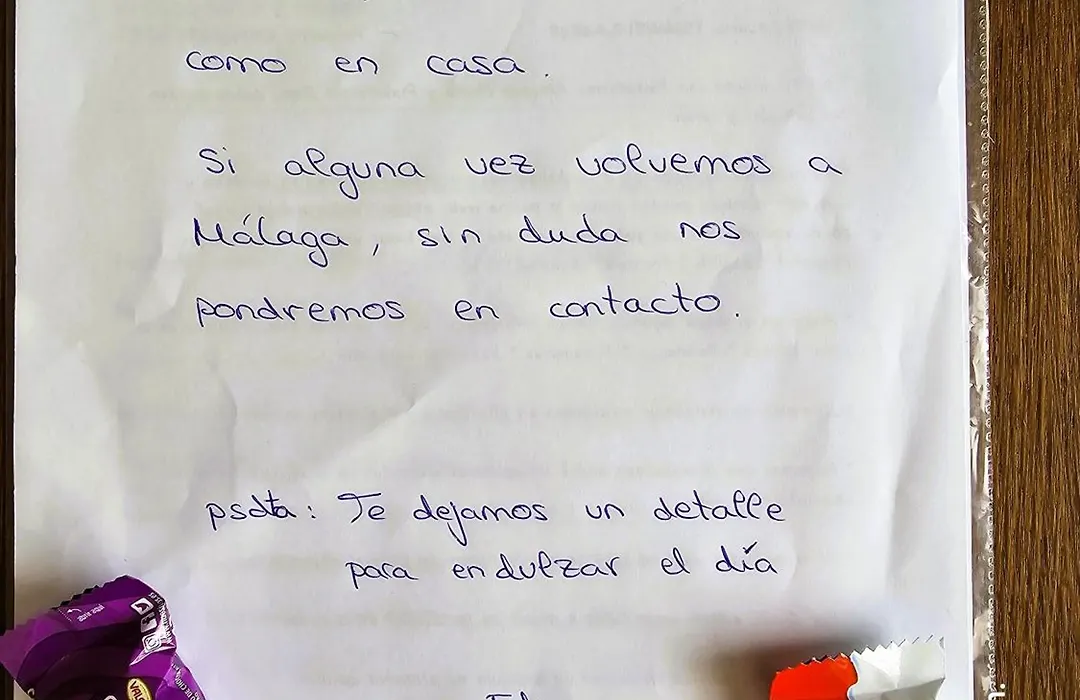 como en casa.
Si alguna vez volvemos a
Málaga, sin duda nos
pondremos en contacto.
psdta: Te dejamos un detalle
para endulzar el día